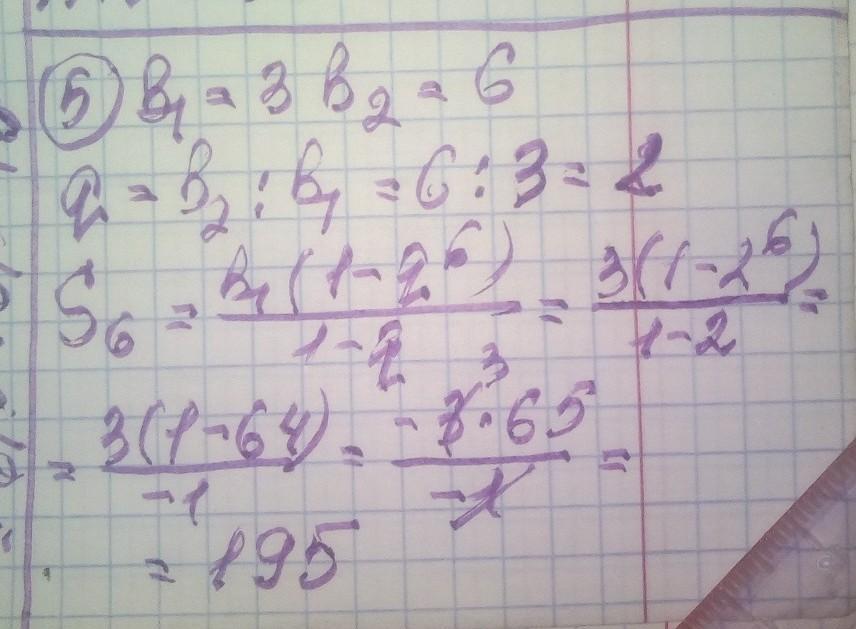 5 b₁ = 3 b₂ = 6
q = b₂ : b₁ = 6 : 3 = 2
S₆ = b₁(1-q⁶)/1-q = 3(1-2⁶)/1-2 =
= 3(1-64)/-1 = -3·65/-1 =
= 195